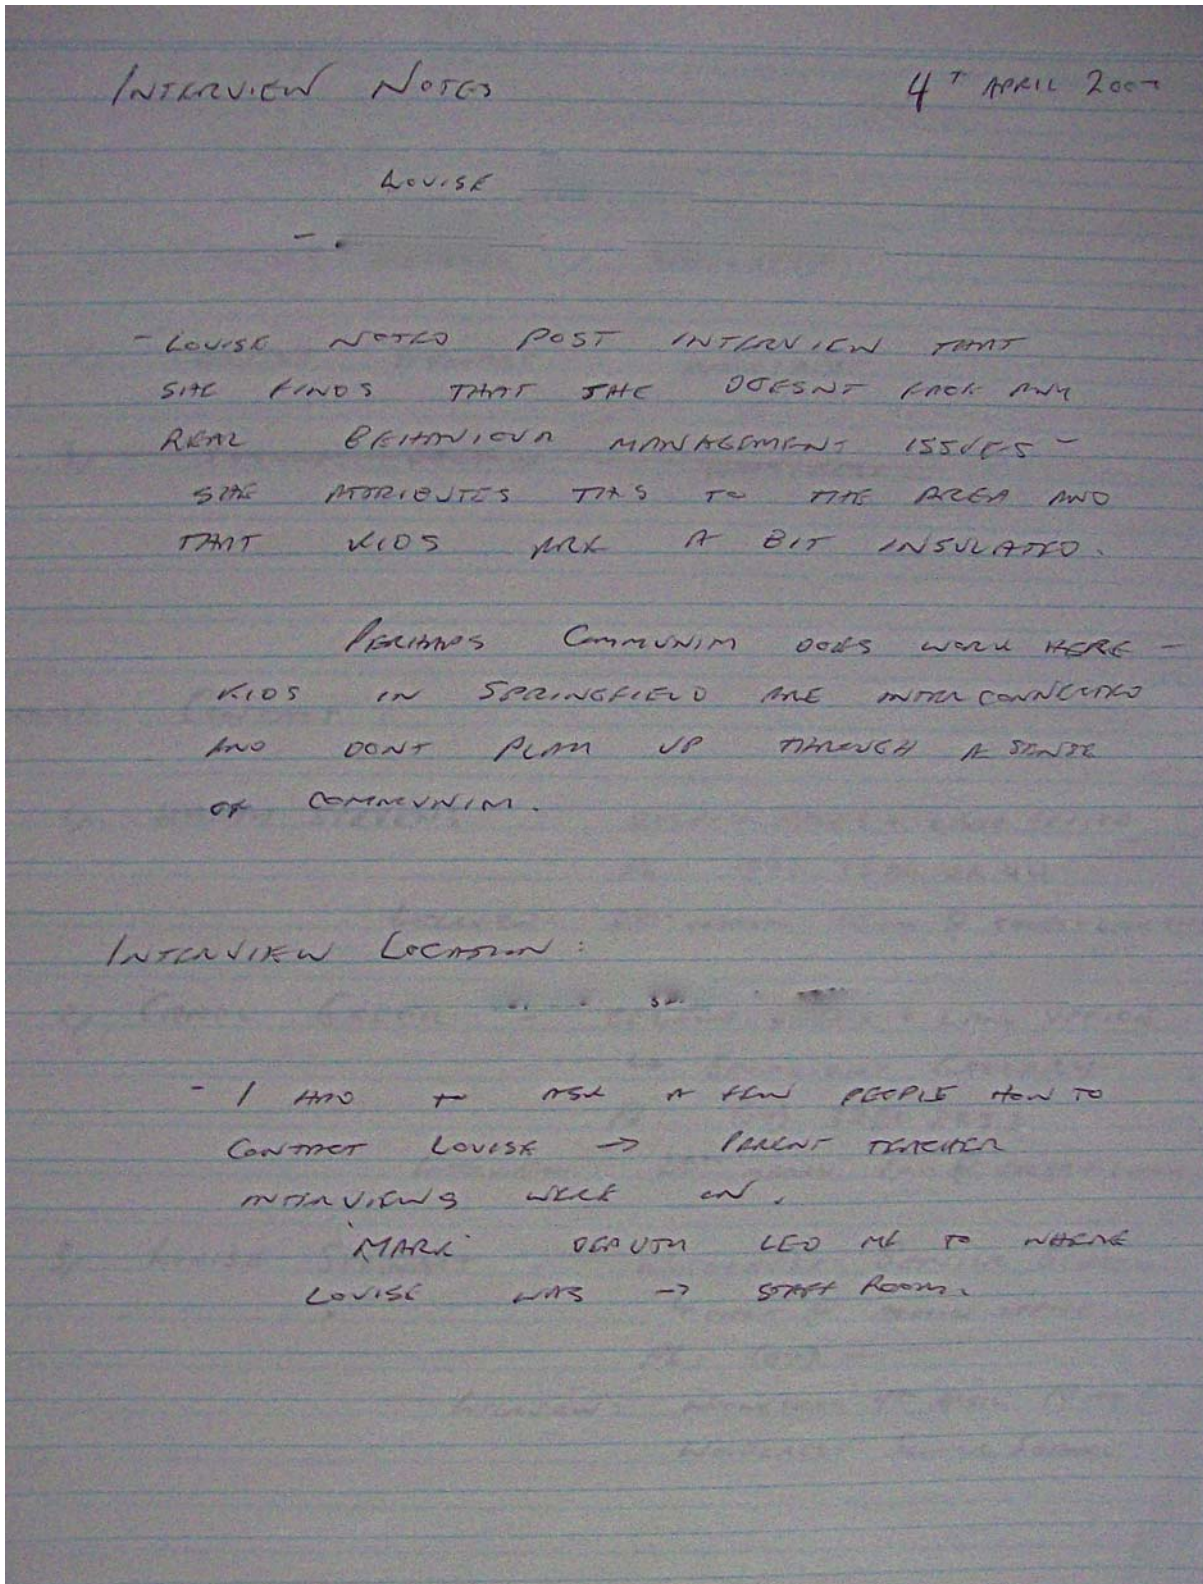 INTERVIEW NOTES 4T APRIL 2007
LOUISE
- LOUISE NOTED POST INTERVIEW THAT
SHE FINDS THAT SHE DOESNT FACE ANY
REAL BEHAVIOUR MANAGEMENT ISSUES -
SHE ATTRIBUTES THIS TO THE AREA AND
THAT KIDS ARE A BIT INSULATED.
PERHAPS COMMUNITY DOES WORK HERE -
KIDS IN SPRINGFIELD ARE INTERCONNECTED
AND DONT PLAY UP THROUGH A SENSE
OF COMMUNITY.
INTERVIEW LOCATION:
- I HAD TO ASK A FEW PEOPLE HOW TO
CONTACT LOUISE → PARENT TEACHER
INTERVIEWS WERE ON.
'MARK' DEPUTY LED ME TO WHERE
LOUISE WAS → STAFF ROOM.